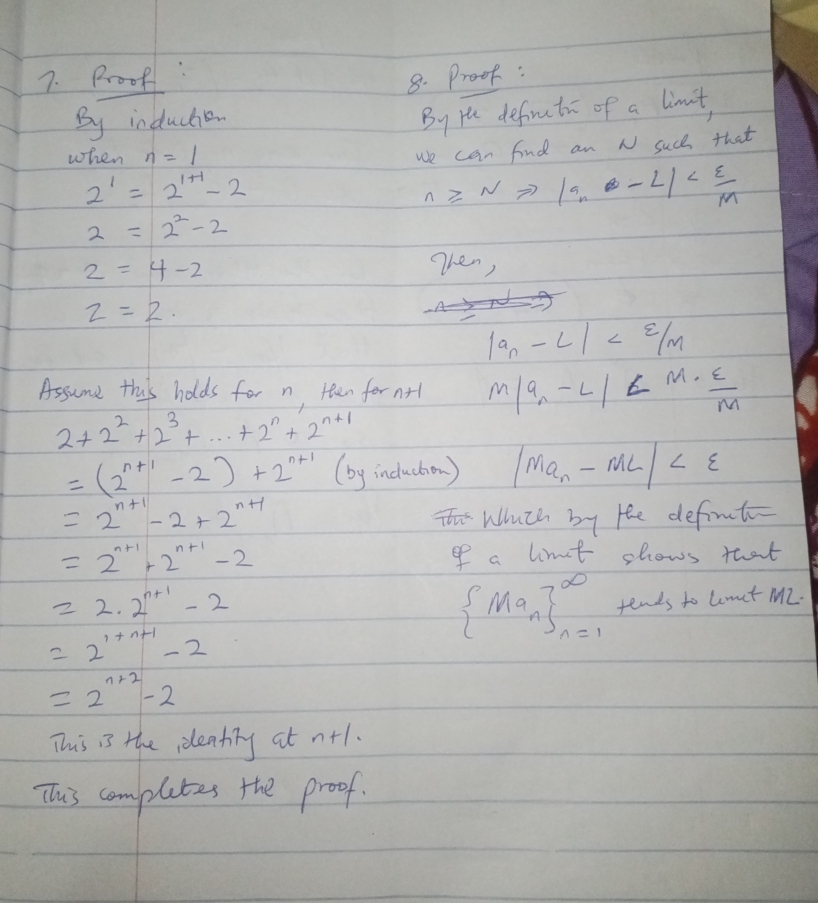 7. Proof:
By induction
when n = 1
2¹ = 2¹⁺¹ - 2
2 = 2² - 2
2 = 4 - 2
2 = 2.
Assume this holds for n, then for n+1
2 + 2² + 2³ + ... + 2ⁿ + 2ⁿ⁺¹
= (2ⁿ⁺¹ - 2) + 2ⁿ⁺¹ (by induction)
= 2ⁿ⁺¹ - 2 + 2ⁿ⁺¹
= 2ⁿ⁺¹ + 2ⁿ⁺¹ - 2
= 2.2ⁿ⁺¹ - 2
= 2¹⁺ⁿ⁺¹ - 2
= 2ⁿ⁺² - 2
This is the identity at n+1.
This completes the proof.
8. Proof:
By the definitn of a limit,
we can find an N such that
n ≥ N ⇒ |aₙ - L| < ε/M
Then,
n ≥ N ⇒
|aₙ - L| < ε/M
M|aₙ - L| < M . ε/M
|Maₙ - ML| < ε
Which by the definitn
of a limit shows that
{Maₙ}∞ₙ₌₁ tends to limit ML.